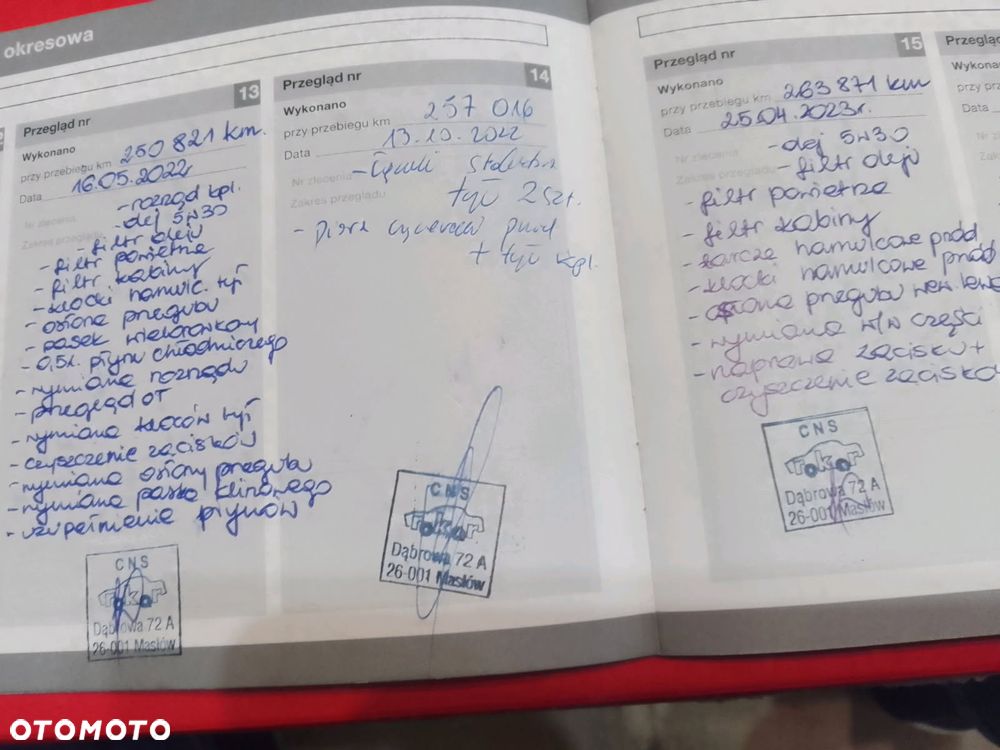 okresowa
Przegląd nr
13
Wykonano
przy przebiegu km 250 821 km.
Data 16.05.2022r
Nr zlecenia
Zakres przeglądu
- rozrząd kpl.
- olej 5w30
- filtr oleju
- filtr powietrza
- filtr kabiny
- klocki hamulc. tył
- osłona przegubu
- pasek wielorowkowy
- 0,5l. płynu chłodniczego
- wymiana rozrządu
- przegląd OT
- wymiana klocków tył
- czyszczenie zacisków
- wymiana osłony przegubu
- wymiana paska klinowego
- uzupełnienie płynów
CNS
Dąbrowa 72 A
26-001 Masłów
Przegląd nr
14
Wykonano
przy przebiegu km 257 016
Data 13.10.2022
Nr zlecenia
Zakres przeglądu
tył 2 szt.
+ tył kpl.
CNS
Dąbrowa 72 A
26-001 Masłów
Przegląd nr
15
Wykonano
przy przebiegu km 263 871 km
Data 25.04.2023r.
Nr zlecenia
Zakres przeglądu
- olej 5w30
- filtr oleju
- filtr powietrza
- filtr kabiny
- tarcze hamulcowe przód
- klocki hamulcowe przód
- osłona przegubu wew. lewa
- wymiana w/w części
- naprawa zacisku +
czyszczenie zacisków
CNS
Dąbrowa 72 A
26-001 Masłów
Przegląd
Wykona
przy p
Data
OTOMOTO